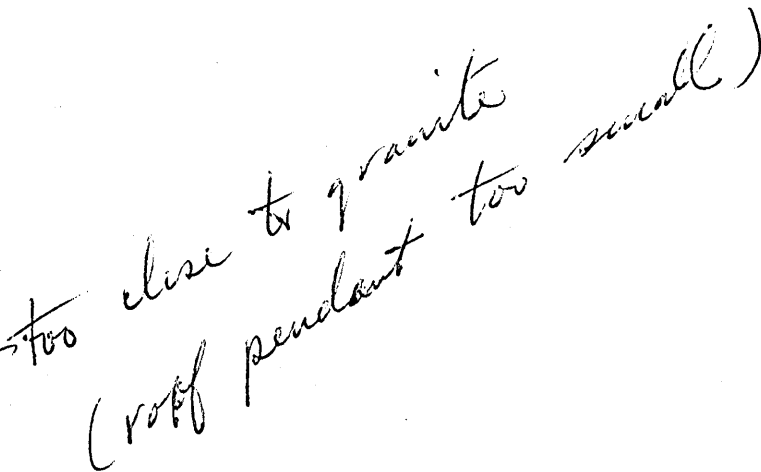 too close to granite
(roof pendant too small)